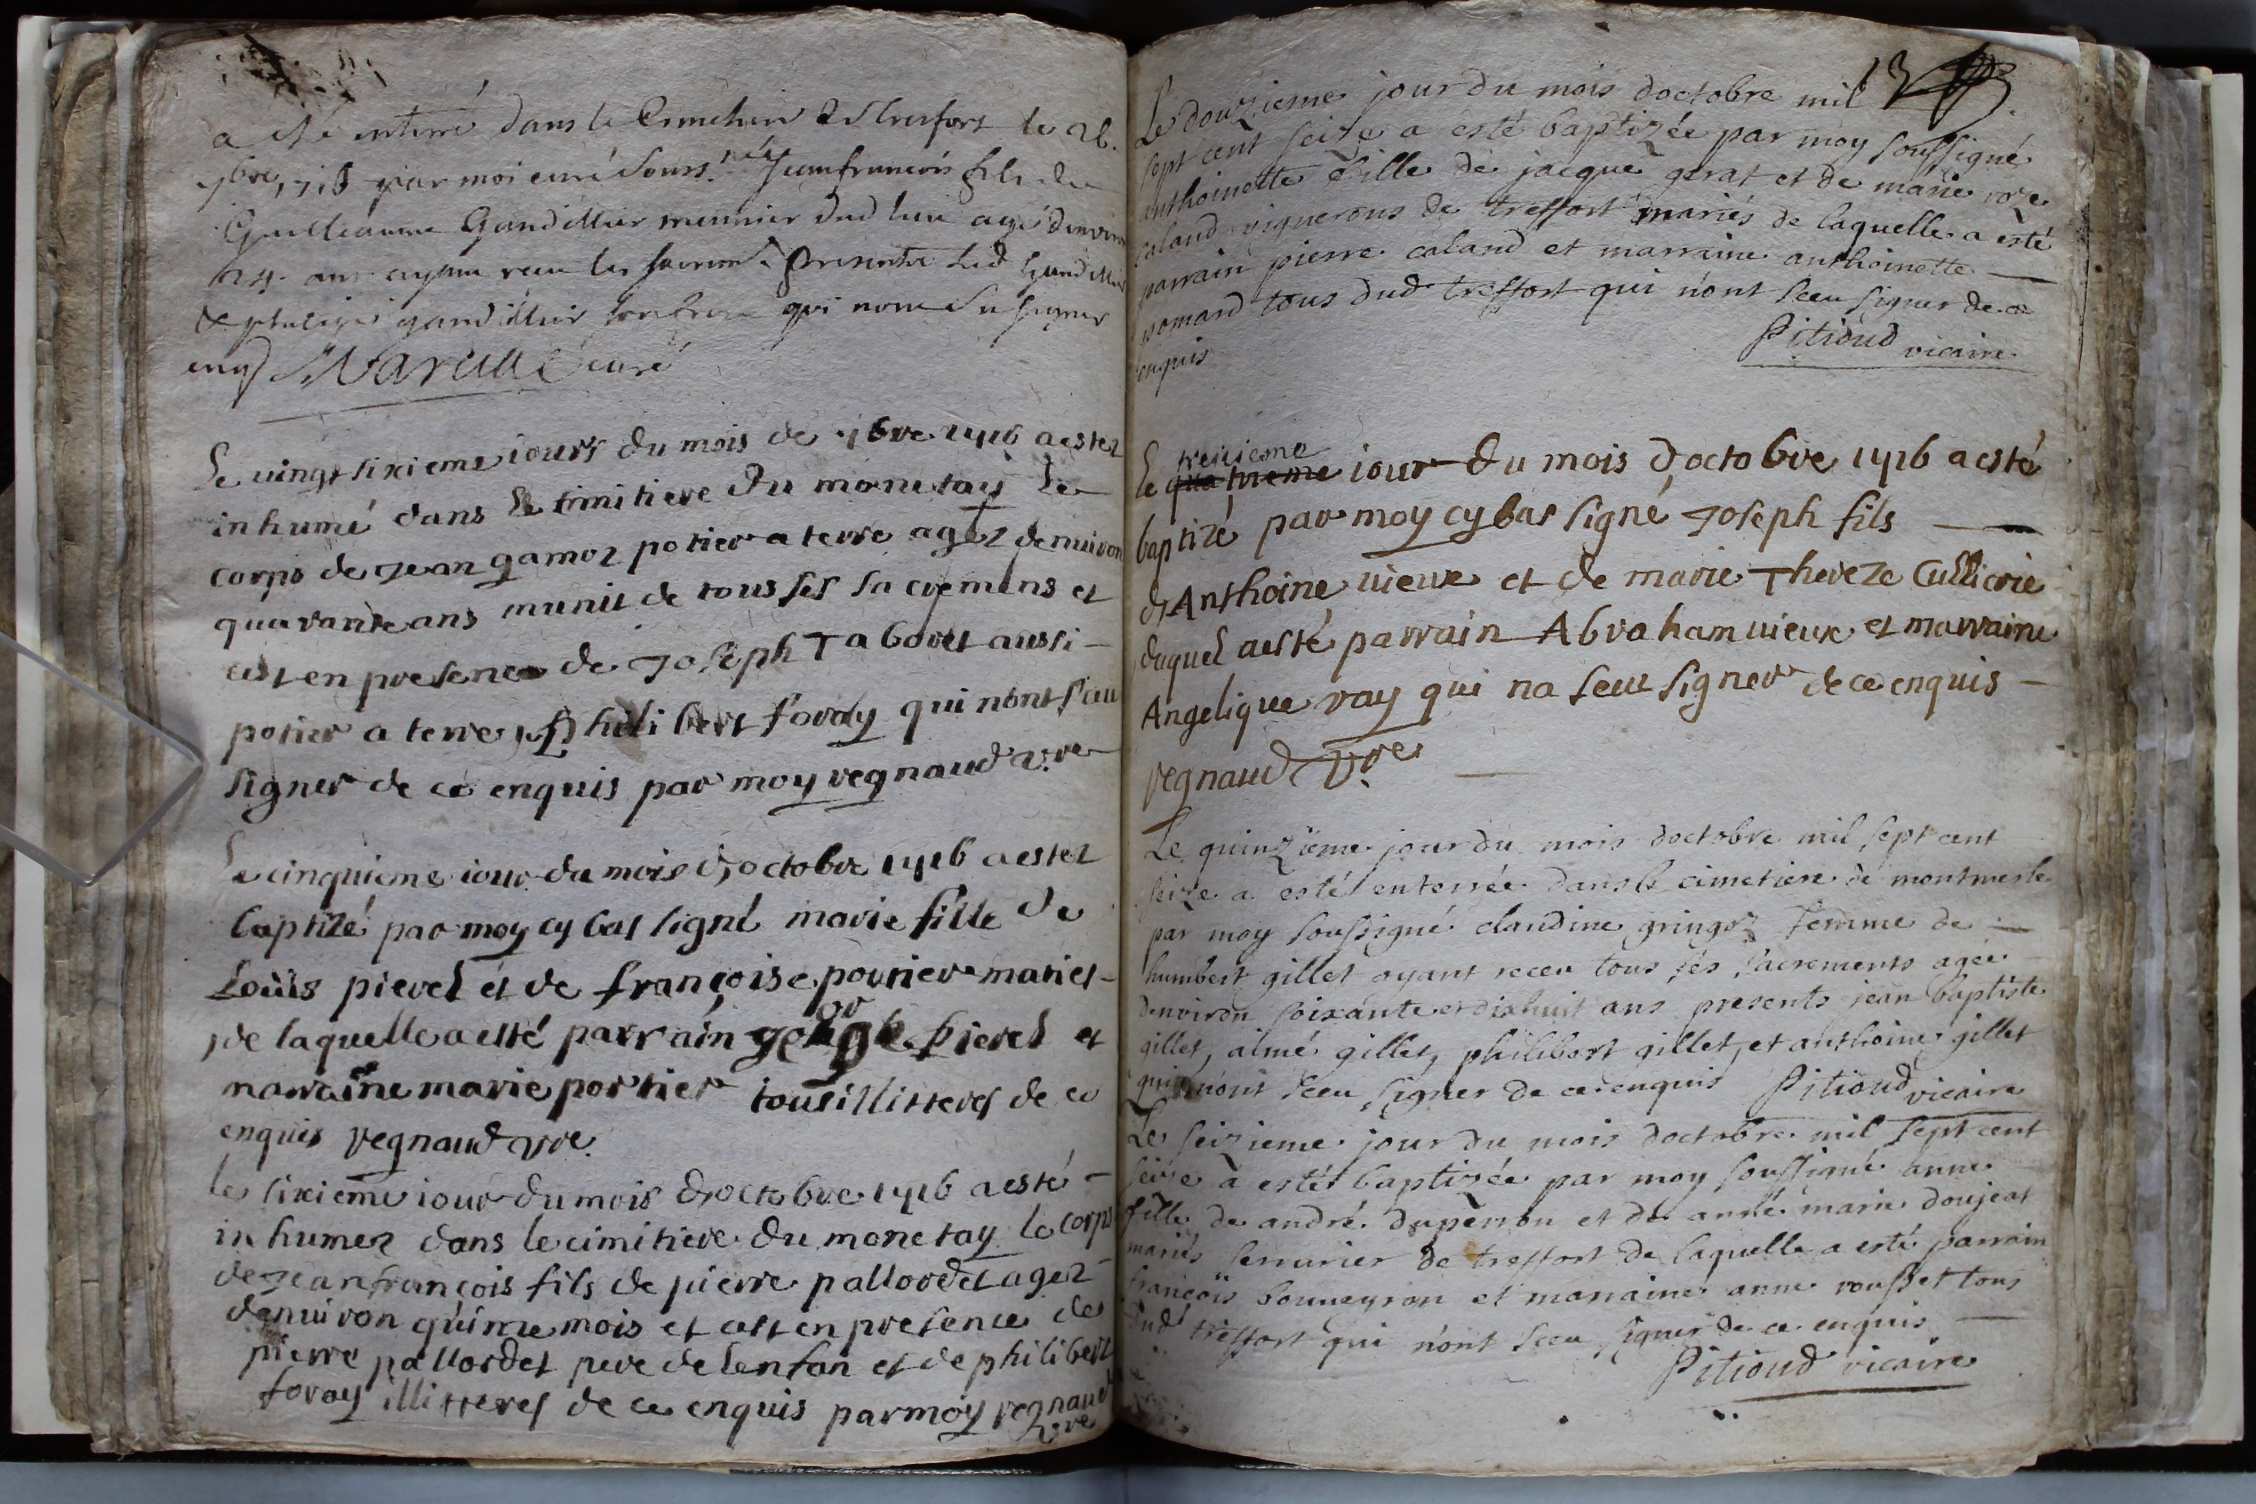 a été enterré dans le Cimetiere de Treffort le 26.
7bre 1716 par moi curé souss.né Jeanfrancois fils de
Guilleaume Gandillier meunier dud lieu agé denviron
24. ans ayant receu les sacrem.ts presents led Gandillier
& philizé gandillier son frere qui nont su signer
enqs Marcille curé
Le vingt sixieme iours du mois de 7bre 1716 aestez
inhumé dans le cimitiere du monetay le
corps de Jean gamoz potier a terre agez denuiron
quarante ans munit de tous ses sacremens et
cest en presence de Joseph Taboret aussi
potier a terre, philibert foray qui nont sceu
signer de ce enquis par moy regnaud vre
Le cinquieme iour du mois d'octobre 1716 aestez
baptizé par moy cy bas signé marie fille de
Loüis pierel et de françoise portier mariet
de laquelle aesté parrain george pierel et
marraine marie portier tous illitteres de ce
enquis regnaud vre.
le sixieme iour du mois d'octobre 1716 aesté
inhumez dans le cimitiere du monetay le corps
de Jeanfrançois fils de pierre pallordet agez
denuiron quinze mois et cest en presence de
pierre pallordet pere de lenfan et de philibert
foray illitteres de ce enquis par moy regnaud
vre
13
Le douzieme jour du mois doctobre mil
sept cent seize a esté baptizée par moy soussigné
anthoinette fille de jacque gerat et de marie roze
caland vignerons de treffort mariés de laquelle a esté
parrain pierre caland et marraine anthoinette
pomard tous dud treffort qui n'ont sceu signer de ce
enquis
Pitioud vicaire
treizieme
le quatrieme iour du mois d'octobre 1716 aesté
baptizé par moy cy bas signé Joseph fils
d'Anthoine uieux et de marie Thereze Cullierie
duquel aesté parrain Abraham uieux et marraine
Angelique ray qui na seeu signer de ce enquis
regnaud vre
Le quinzieme jour du mois doctobre mil sept cent
seize a esté enterrée dans le cimetiere de montmerle
par moy soussigné claudine gringoz femme de
humbert gillet ayant receu tous ses sacrements agée
denviron soixante et dix huit ans presents jean baptiste
gillet, aimé gillet, philibert gillet, et anthoine gillet
qui n'ont sceu signer de ce enquis Pitioud vicaire
Le seizieme jour du mois doctobre mil sept cent
seize a esté baptizée par moy soussigné anne
fille de andré duperron et de anne marie doujeat
mariés serrurier de treffort de laquelle a esté parrain
françois bouveyron et marraine anne rousset tous
dud treffort qui n'ont sceu signer de ce enquis
Pitioud vicaire